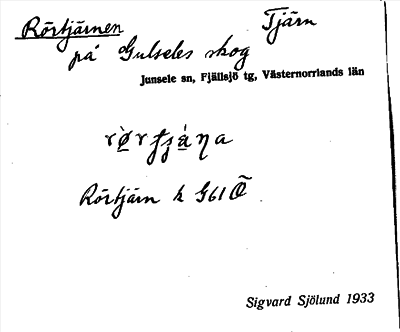 Rörtjärnen Tjärn
på Gulseles skog
Junsele sn, Fjällsjö tg, Västernorrlands län
Rörtjärn k G61Ö
Sigvard Sjölund 1933